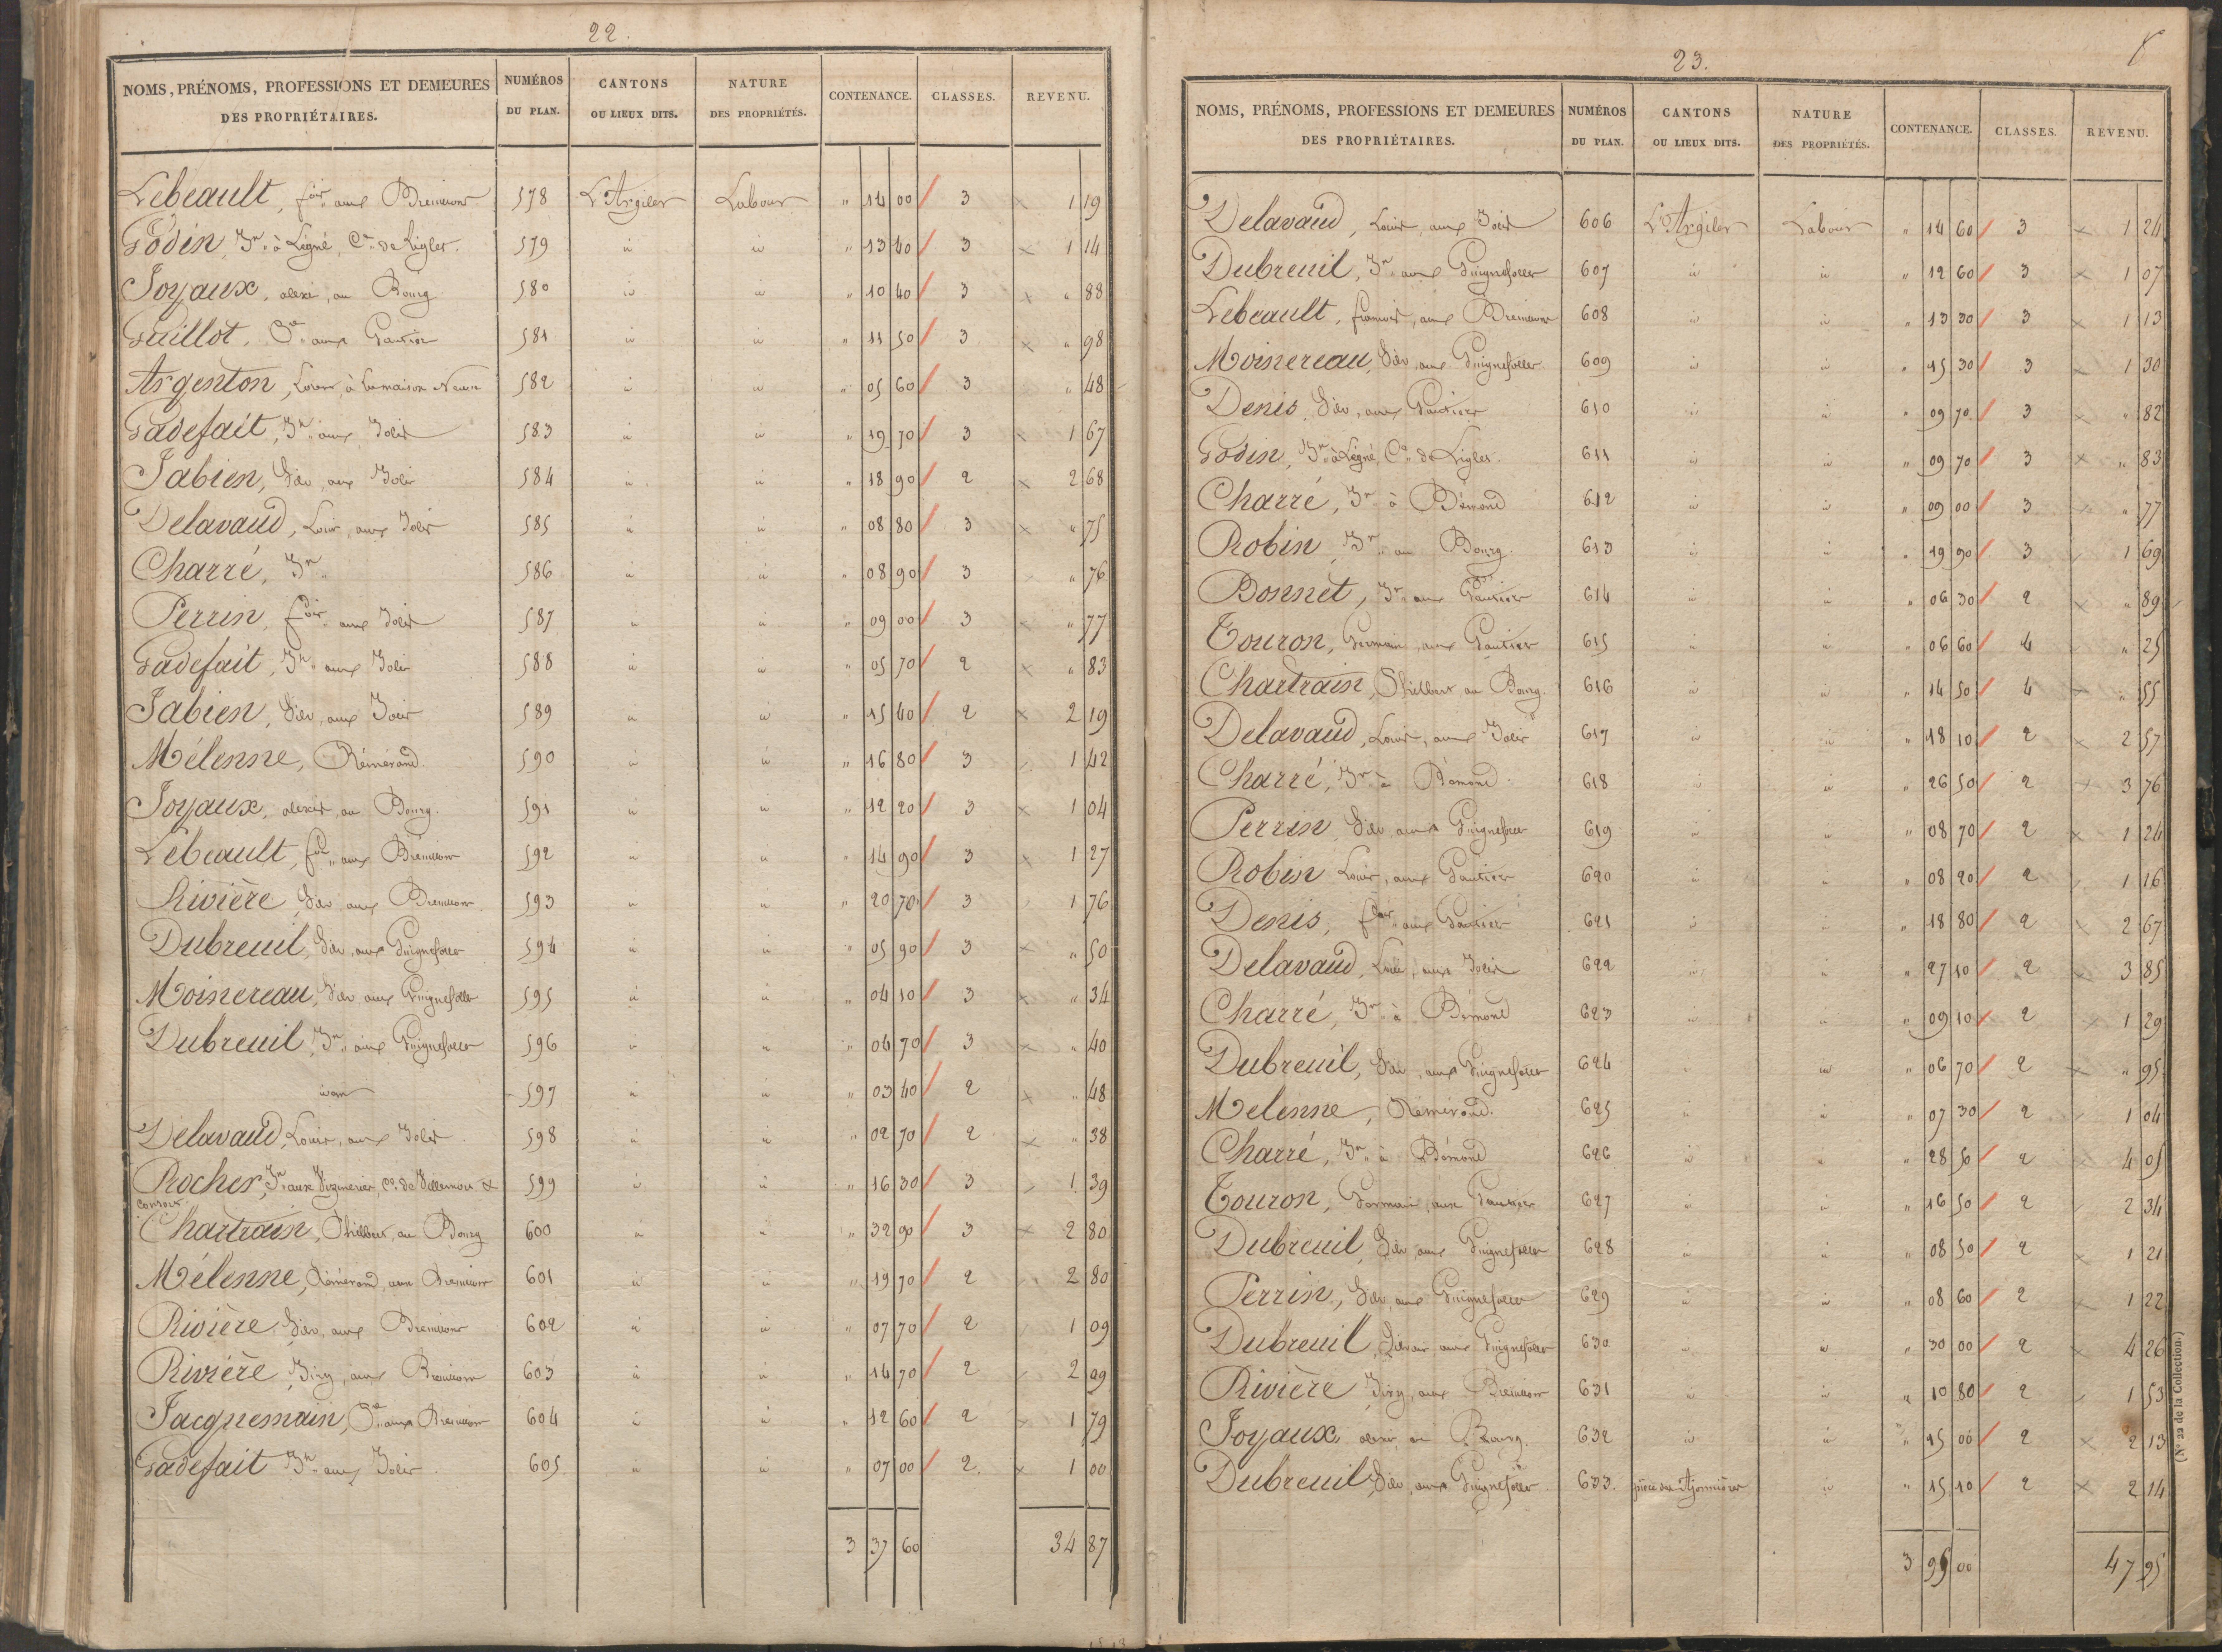 22.
NOMS, PRÉNOMS, PROFESSIONS ET DEMEURES DES PROPRIÉTAIRES. NUMÉROS DU PLAN. CANTONS OU LIEUX DITS. NATURE DES PROPRIÉTÉS. CONTENANCE. CLASSES. REVENU.
Lebeault, fois aux 578 L'Argiler Labour " 14 00 3 1 19
Godin, Jn à Légné, Cne de Ligler. 579 id id " 13 40 3 1 14
Joyaux, alexis, au Bourg 580 id id " 10 40 3 " 88
Guillot, aux Gautier 581 id id " 11 50 3 " 98
Argenton, Louis, à Lamaison Neuve 582 id id " 05 60 3 " 48
Gadefait, Jn aux Jolis 583 id id " 19 70 3 1 67
Jabien, Silv, aux Jolis 584 id id " 18 90 2 2 68
Delavaud, Louis, aux Jolis 585 id id " 08 80 3 " 75
Charré, Jn 586 id id " 08 90 3 " 76
Perrin, fois aux Jolis 587 id id " 09 00 3 " 77
Gadefait, Jn aux Jolis 588 id id " 05 70 2 " 83
Jabien, Silv, aux Jolis 589 id id " 15 40 2 2 19
Mélenne, Rémérand. 590 id id " 16 80 3 1 42
Joyaux, alexis, au Bourg. 591 id id " 12 20 3 1 04
Lebeault, aux 592 id id " 14 90 3 1 27
Rivière Silv, aux 593 id id " 20 70 3 1 76
Dubreuil, Silv, aux Guignefolles 594 id id " 05 90 3 " 50
Moinereau, Silv aux Guignefolles 595 id id " 04 10 3 " 34
Dubreuil, Jn aux Guignefolles 596 id id " 04 70 3 " 40
idem 597 id id " 03 40 2 " 48
Delavaud, Louis, aux Jolis 598 id id " 02 70 2 " 38
Rocher, Jn aux Cne de 599 id id " 16 30 3 1 39
Chartrain, Philbert, au Bourg 600 id id " 32 90 3 2 80
Mélenne, Rémérand, aux 601 id id " 19 70 2 2 80
Rivière Silv, aux 602 id id " 07 70 2 1 09
Rivière aux 603 id id " 14 70 2 2 09
Jacquemain, aux 604 id id " 12 60 2 1 79
Gadefait Jn aux Jolis 605 id id " 07 00 2. 1 00
3 37 60 34 87
23.
NOMS, PRÉNOMS, PROFESSIONS ET DEMEURES DES PROPRIÉTAIRES. NUMÉROS DU PLAN. CANTONS OU LIEUX DITS. NATURE DES PROPRIÉTÉS. CONTENANCE. CLASSES. REVENU.
Delavaud, Louis, aux Jolis 606 L'Argiler Labour " 14 60 3 1 24
Dubreuil, Jn aux Guignefolles 607 id id " 12 60 3 1 07
Lebeault, francois, aux 608 id id " 13 30 3 1 13
Moinereau, Silv, aux Guignefolles 609 id id " 15 30 3 1 30
Denis, Silv, aux Gautier 610 id id " 09 70 3 " 82
Godin, Jn à Légné, Cne de Ligler. 611 id id " 09 70 3 " 83
Charré, Jn à Bémond 612 id id " 09 00 3 " 77
Robin, Jn au Bourg. 613 id id " 19 90 3 1 69
Bonnet, Jn aux Gautier 614 id id " 06 30 2 " 89
Touron, Germain, aux Gautier 615 id id " 06 60 4 " 25
Chartrain, Philbert au Bourg. 616 id id " 14 50 4 " 55
Delavaud, Louis, aux Jolis 617 id id " 18 10 2 2 57
Charré, Jn à Bémond 618 id id " 26 50 2 3 76
Perrin, Silv, aux Guignefolles 619 id id " 08 70 2 1 24
Robin Louis, aux Gautier 620 id id " 08 20 2 1 16
Denis, fois aux Gautier 621 id id " 18 80 2 2 67
Delavaud, Louis, aux Jolis 622 id id " 27 10 2 3 85
Charré, Jn à Bémond 623 id id " 09 10 2 1 29
Dubreuil, Silv, aux Guignefolles 624 id id " 06 70 2 " 95
Melenne, Rémérand. 625 id id " 07 30 2 1 04
Charré, Jn à Bémond 626 id id " 28 50 2 4 05
Touron, Germain, aux Gautier 627 id id " 16 50 2 2 34
Dubreuil, Silv aux Guignefolles 628 id id " 08 50 2 1 21
Perrin, Silv, aux Guignefolles 629 id id " 08 60 2 1 22
Dubreuil, Silvain aux Guignefolles 630 id id " 30 00 2 4 26
Rivière aux 631 id id " 10 80 2 1 53
Joyaux, alexis, au Bourg. 632 id id " 15 00 2 2 13
Dubreuil, Silv, aux Guignefolles 633. id " 15 10 2 2 14
3 95 00 47 95
(N° 22 de la Collection.)